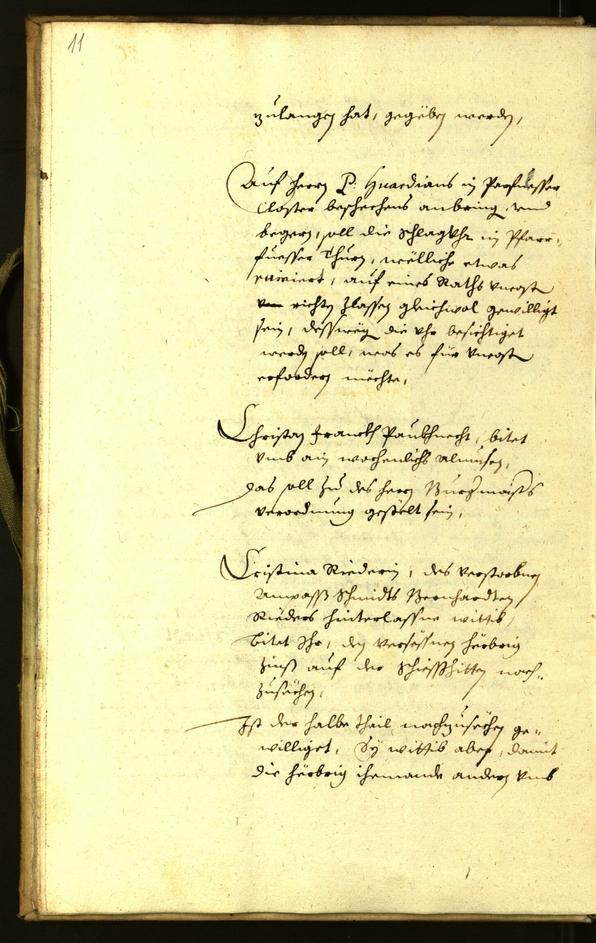 11
zulangen hat, gegeben werden,
Auf herrn P. Guardians in Parfuesser
Closter beschechens anbring vnd
begern, soll die Schlagvhr im Pfarr-
fuesser Thurn, wölliche etwas
ruiniert, auf eines Raths vncosten
richten zlassen gleichwol gewilligt
sein, desswegen die vhr besichtiget
werden soll, was es für vncosten
erfordern möchte,
Christan Franckh Paukhnecht, bitet
vmb ain wochenlichs Almusen,
Das soll zu des herrn Burgmaisters
verordnung gestelt sein,
Cristina Riederin, des verstorbnen
Schmidts Bernhardten
Rieders hinterlassne wittib,
bitet Ihr, den versessnen herbrig
Zinss auf der Schiesshitten nach-
zusechen,
Ist der halbe thail nachzusechen ge-
williget, Sy wittib aber, damit
die herbrig iemands andern vmb